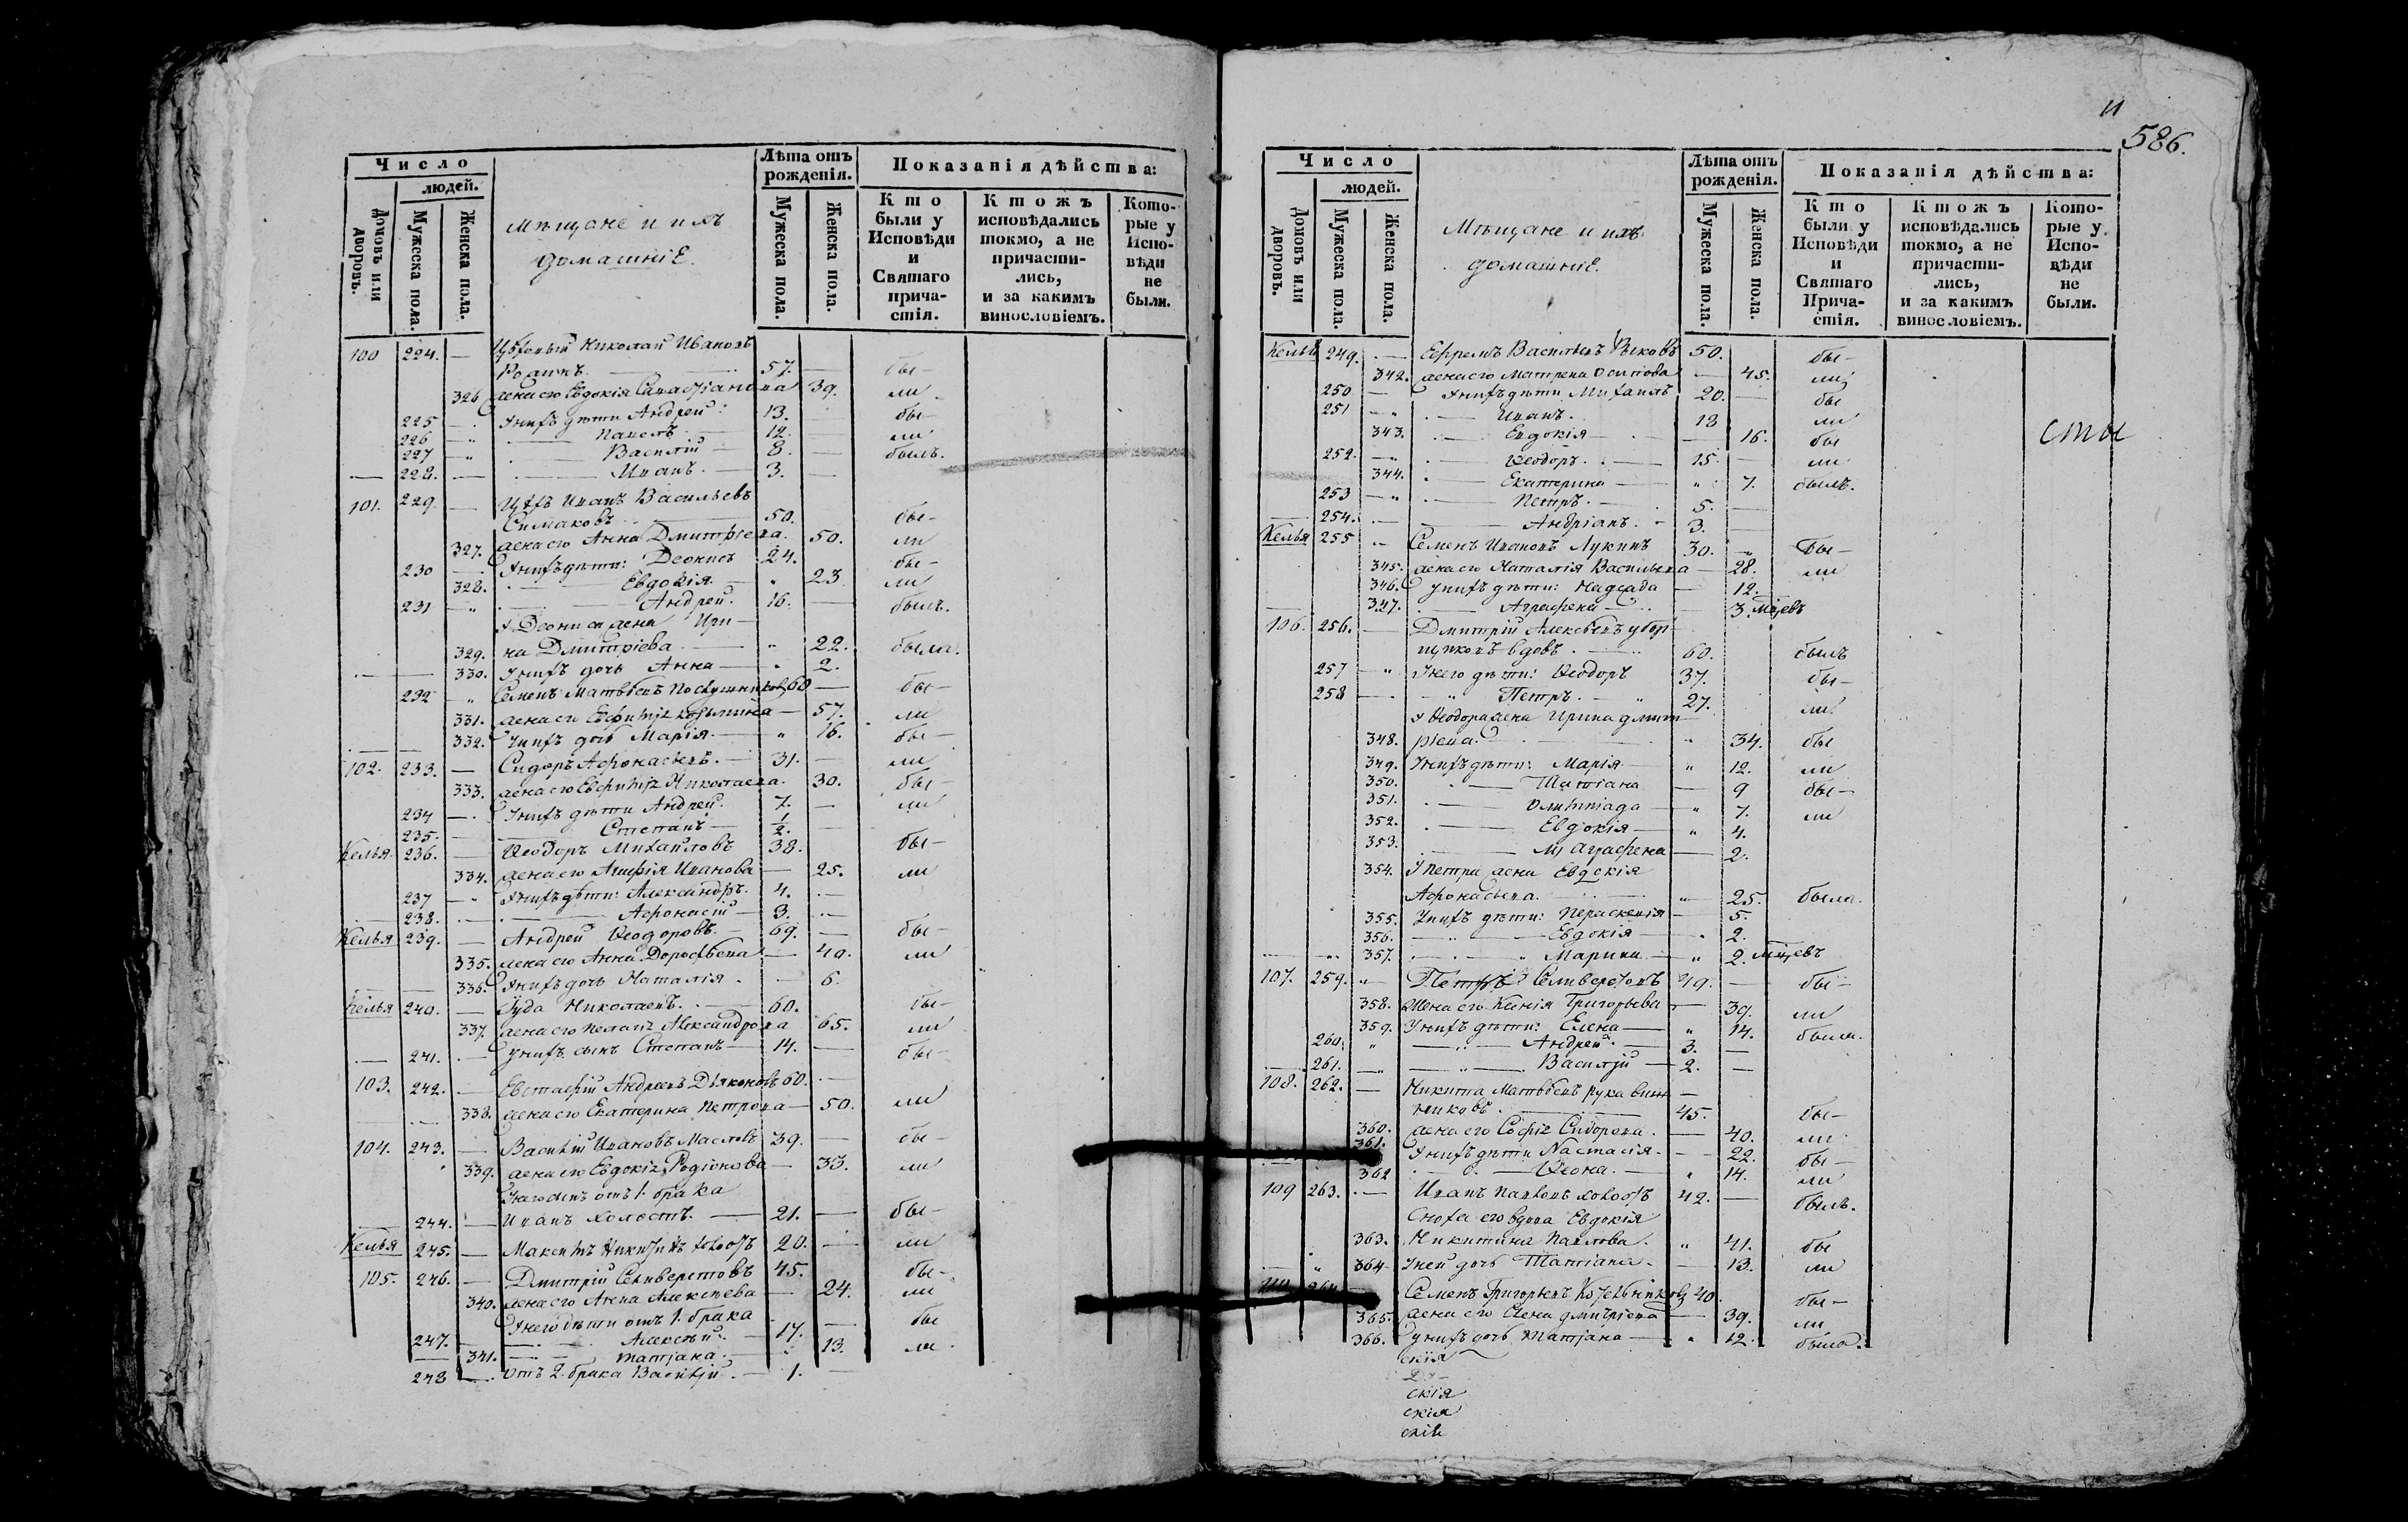 Число
людей.
Домовъ или дворовъ.
Мужеска пола.
Женска пола.
мѣщане и ихъ
домашніе.
Лѣта отъ рожденія.
Мужеска пола.
Женска пола.
Показанія дѣйства:
Кто были у Исповѣди и Святаго причастія.
Ктожъ исповѣдались токмо, а не причастились, и за какимъ винословіемъ.
Которые у Исповѣди не были.
100 224. — Николай Ивановъ
57. — бы-
326 жена его Евдокія 39. ли
225 — У нихъ дѣти Андрей 13. бы-
226 — Павелъ 12. ли
227 — Василій 8. — былъ.
228. — Иванъ. — 3.
101. 229. — Иванъ Васильевъ
Симаковъ 50. бы-
327. жена его Анна Дмитріева. 50. ли
230 — У нихъ дѣти: Деонисъ 24. бы-
328. Евдокія — 23 ли
231 — Андрей. 16. — былъ.
Деониса жена Ири-
329. на Дмитріева — 22. была.
330. У нихъ дочь Анна — 2.
232 — Семенъ Матвѣевъ 60 — бы-
331. жена его — 57. ли
332. У нихъ дочь Марія. — 16. бы-
102. 233. — Сидоръ Афонасьевъ. — 31. — ли
333. жена его Николаева. 30. бы-
234 — У нихъ дѣти Андрей. 7. — ли
235. — Степанъ — 1/2.
Келья 236. — Ѳеодоръ Михайловъ 38. бы-
334. жена его Иванова — 25. ли
237 — У нихъ дѣти: Александръ. 4.
238. — Афонасій — 3.
Келья 239. — Андрей Ѳеодоровъ. — 69. — бы-
335. жена его Анна Дорофѣева — 40. ли
336. У нихъ дочь Наталія. — 6.
Келья 240. — Іуда Николаевъ. — 60. бы-
337. жена его Александрова 65. ли
241. — У нихъ сынъ Степанъ — 14. — бы-
103. 242. — Евстафій Андреевъ Дьяконовъ 60.
338. жена его Екатерина Петрова — 50. ли
104. 243. — Василій Ивановъ Масловъ 39. — бы-
339. жена его Евдокія Родіонова — 33. ли
У него сынъ отъ 1. брака
244. — Иванъ холостъ. — 21. — бы-
Келья 245. — Максимъ Никитинъ холостъ 20. — ли
105. 246. — Дмитрій Селиверстовъ 45. бы-
340. жена его Анна Алексѣева — 24. ли
У него дѣти отъ 1. брака — бы
247. — Алексѣй. — 17.
341. — Татіана. — 13. ли
248 — Отъ 2. брака Василій. — 1. —
11
586.
Число
людей.
Домовъ или дворовъ.
Мужеска пола.
Женска пола.
Мѣщане и ихъ
домашніе.
Лѣта отъ рожденія.
Мужеска пола.
Женска пола.
Показанія дѣйства:
Кто были у Исповѣди и Святаго Причастія.
Ктожъ исповѣдались токмо, а не причастились, и за какимъ винословіемъ.
Которые у Исповѣди не были.
Келья 249. — Ефремъ Васильевъ 50. бы-
342. жена его Матрена Осипова — 45. ли
250 — У нихъ дѣти Михаилъ 20. — бы
251 — Иванъ. 18 ли
343. — Евдокія — 16. бы
252. — Ѳеодоръ. — 15. — ли
344. — Екатерина — 7. былъ.
253 — Петръ. — 5. —
254. — Андріанъ. — 3.
Келья 255 — Семенъ Ивановъ Лукинъ 30. бы-
345. жена его Наталія Васильева — 28. ли
346. У нихъ дѣти: Надежда — 12.
347. Аграфена — 3. мѣ.цевъ
106. 256. — Дмитрій Алексѣевъ
вдовъ. — 60. былъ
257 — У него дѣти: Ѳеодоръ 37. бы-
258 — Петръ. — 27. ли
Ѳеодора жена Ирина Дмит-
348. ріева. — 34. бы
349. У нихъ дѣти: Марія — 12. ли
350. — Татіана — 9 бы-
351. — Олимпіада — 7. ли
352. — Евдокія — 4.
353. — Аграфена — 2.
354. У Петра жена Евдокія
Афонасьева. — 25. была.
355. У нихъ дѣти: Пераскевія — 5.
356. — Евдокія — 2.
357. — Марина — 2. мѣ.цевъ
107. 259. Петръ Селиверстовъ 49. — бы-
358. Жена его Ксенія Григорьева — 39. ли
359. У нихъ дѣти: Елена — 14. была.
260. — Андрей. — 3. —
261. — Василій — 2. —
108. 262. — Никита Матвѣевъ Рукавиш-
никовъ. — 45. бы-
360. жена его Софія Сидорова. — 40. ли
361. У нихъ дѣти Настасія. — 22. бы-
362 — 14. ли
109 263. — Иванъ Павловъ холостъ 42. — былъ.
Сноха его вдова Евдокія
363. Никитина Павлова. 41. бы
364 У ней дочь Татіана. — 13. ли
110 264 Семенъ Григорьевъ 40. бы-
365. жена его Дмитріева — 39. ли
366. У нихъ дочь Татіана — 12. была.
скія
скія
скія